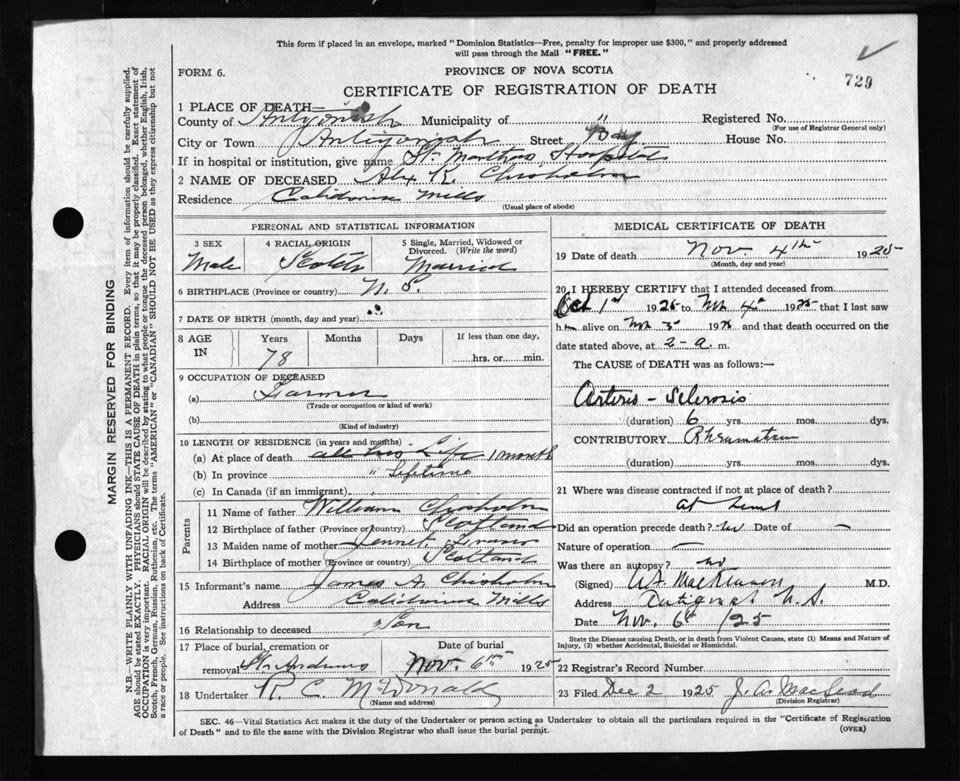 This form if placed in an envelope, marked "Dominion Statistics—Free, penalty for improper use $300," and properly addressed
will pass through the Mail "FREE."
FORM 6.
PROVINCE OF NOVA SCOTIA
729
CERTIFICATE OF REGISTRATION OF DEATH
1 PLACE OF DEATH—
County of Antigonish Municipality of " Registered No.
(For use of Registrar General only)
City or Town Antigonish Street Bay House No.
If in hospital or institution, give name St. Marthas Hospital
2 NAME OF DECEASED Alex R. Chisholm
Residence Caledonia Mills
(Usual place of abode)
PERSONAL AND STATISTICAL INFORMATION
3 SEX 4 RACIAL ORIGIN 5 Single, Married, Widowed or
Divorced. (Write the word)
Male Scotch Married
6 BIRTHPLACE (Province or country) N. S.
7 DATE OF BIRTH (month, day and year)
8 AGE IN Years Months Days If less than one day,
78 hrs. or min.
9 OCCUPATION OF DECEASED
(a) Farmer
(Trade or occupation or kind of work)
(b)
(Kind of industry)
10 LENGTH OF RESIDENCE (in years and months)
(a) At place of death Life 1 month
(b) In province " Lifetime
(c) In Canada (if an immigrant) "
Parents
11 Name of father William Chisholm
12 Birthplace of father (Province or country) Scotland
13 Maiden name of mother Jennet
14 Birthplace of mother (Province or country) Scotland
15 Informant's name James A. Chisholm
Address Caledonia Mills
16 Relationship to deceased Son
17 Place of burial, cremation or Date of burial
removal St. Andrews Nov. 6th 1925
18 Undertaker R. C. McDonald
(Name and address)
MEDICAL CERTIFICATE OF DEATH
19 Date of death Nov 4th 1925
(Month, day and year)
20 I HEREBY CERTIFY that I attended deceased from
Oct 1st 1925 to Nov 4th 1925 that I last saw
him alive on Nov 3 1925 and that death occurred on
date stated above, at 2-a. m.
The CAUSE of DEATH was as follows:—
Arterio-Sclerosis
(duration) 6 yrs. mos. dys.
CONTRIBUTORY Rheumatism
(duration) yrs. mos. dys.
21 Where was disease contracted if not at place of death?
at home
Did an operation precede death? no Date of —
Nature of operation —
Was there an autopsy? no
(Signed) MacKinnon M.D.
Address Antigonish N. S.
Date Nov. 6th /25
State the Disease causing Death, or in death from Violent Causes, state (1) Means and Nature of
Injury, (2) whether Accidental, Suicidal or Homicidal.
22 Registrar's Record Number
23 Filed Dec 2 1925 J. A. MacLeod
(Division Registrar)
SEC. 46—Vital Statistics Act makes it the duty of the Undertaker or person acting as Undertaker to obtain all the particulars required in the "Certificate of Registration
of Death" and to file the same with the Division Registrar who shall issue the burial permit.
(OVER)
MARGIN RESERVED FOR BINDING
N.B.—WRITE PLAINLY WITH UNFADING INK—THIS IS A PERMANENT RECORD. Every item of information should be carefully supplied.
AGE should be stated EXACTLY. PHYSICIANS should STATE CAUSE OF DEATH in plain terms, so that it may be properly classified. Exact statement of
OCCUPATION is very important. RACIAL ORIGIN will be described by stating to what people or tongue the deceased person belonged, whether English, Irish,
Scotch, French, German, Russian, Ruthenian, etc. The terms "AMERICAN" or "CANADIAN" SHOULD NOT BE USED as they express citizenship but not
a race or people. See instructions on back of Certificate.